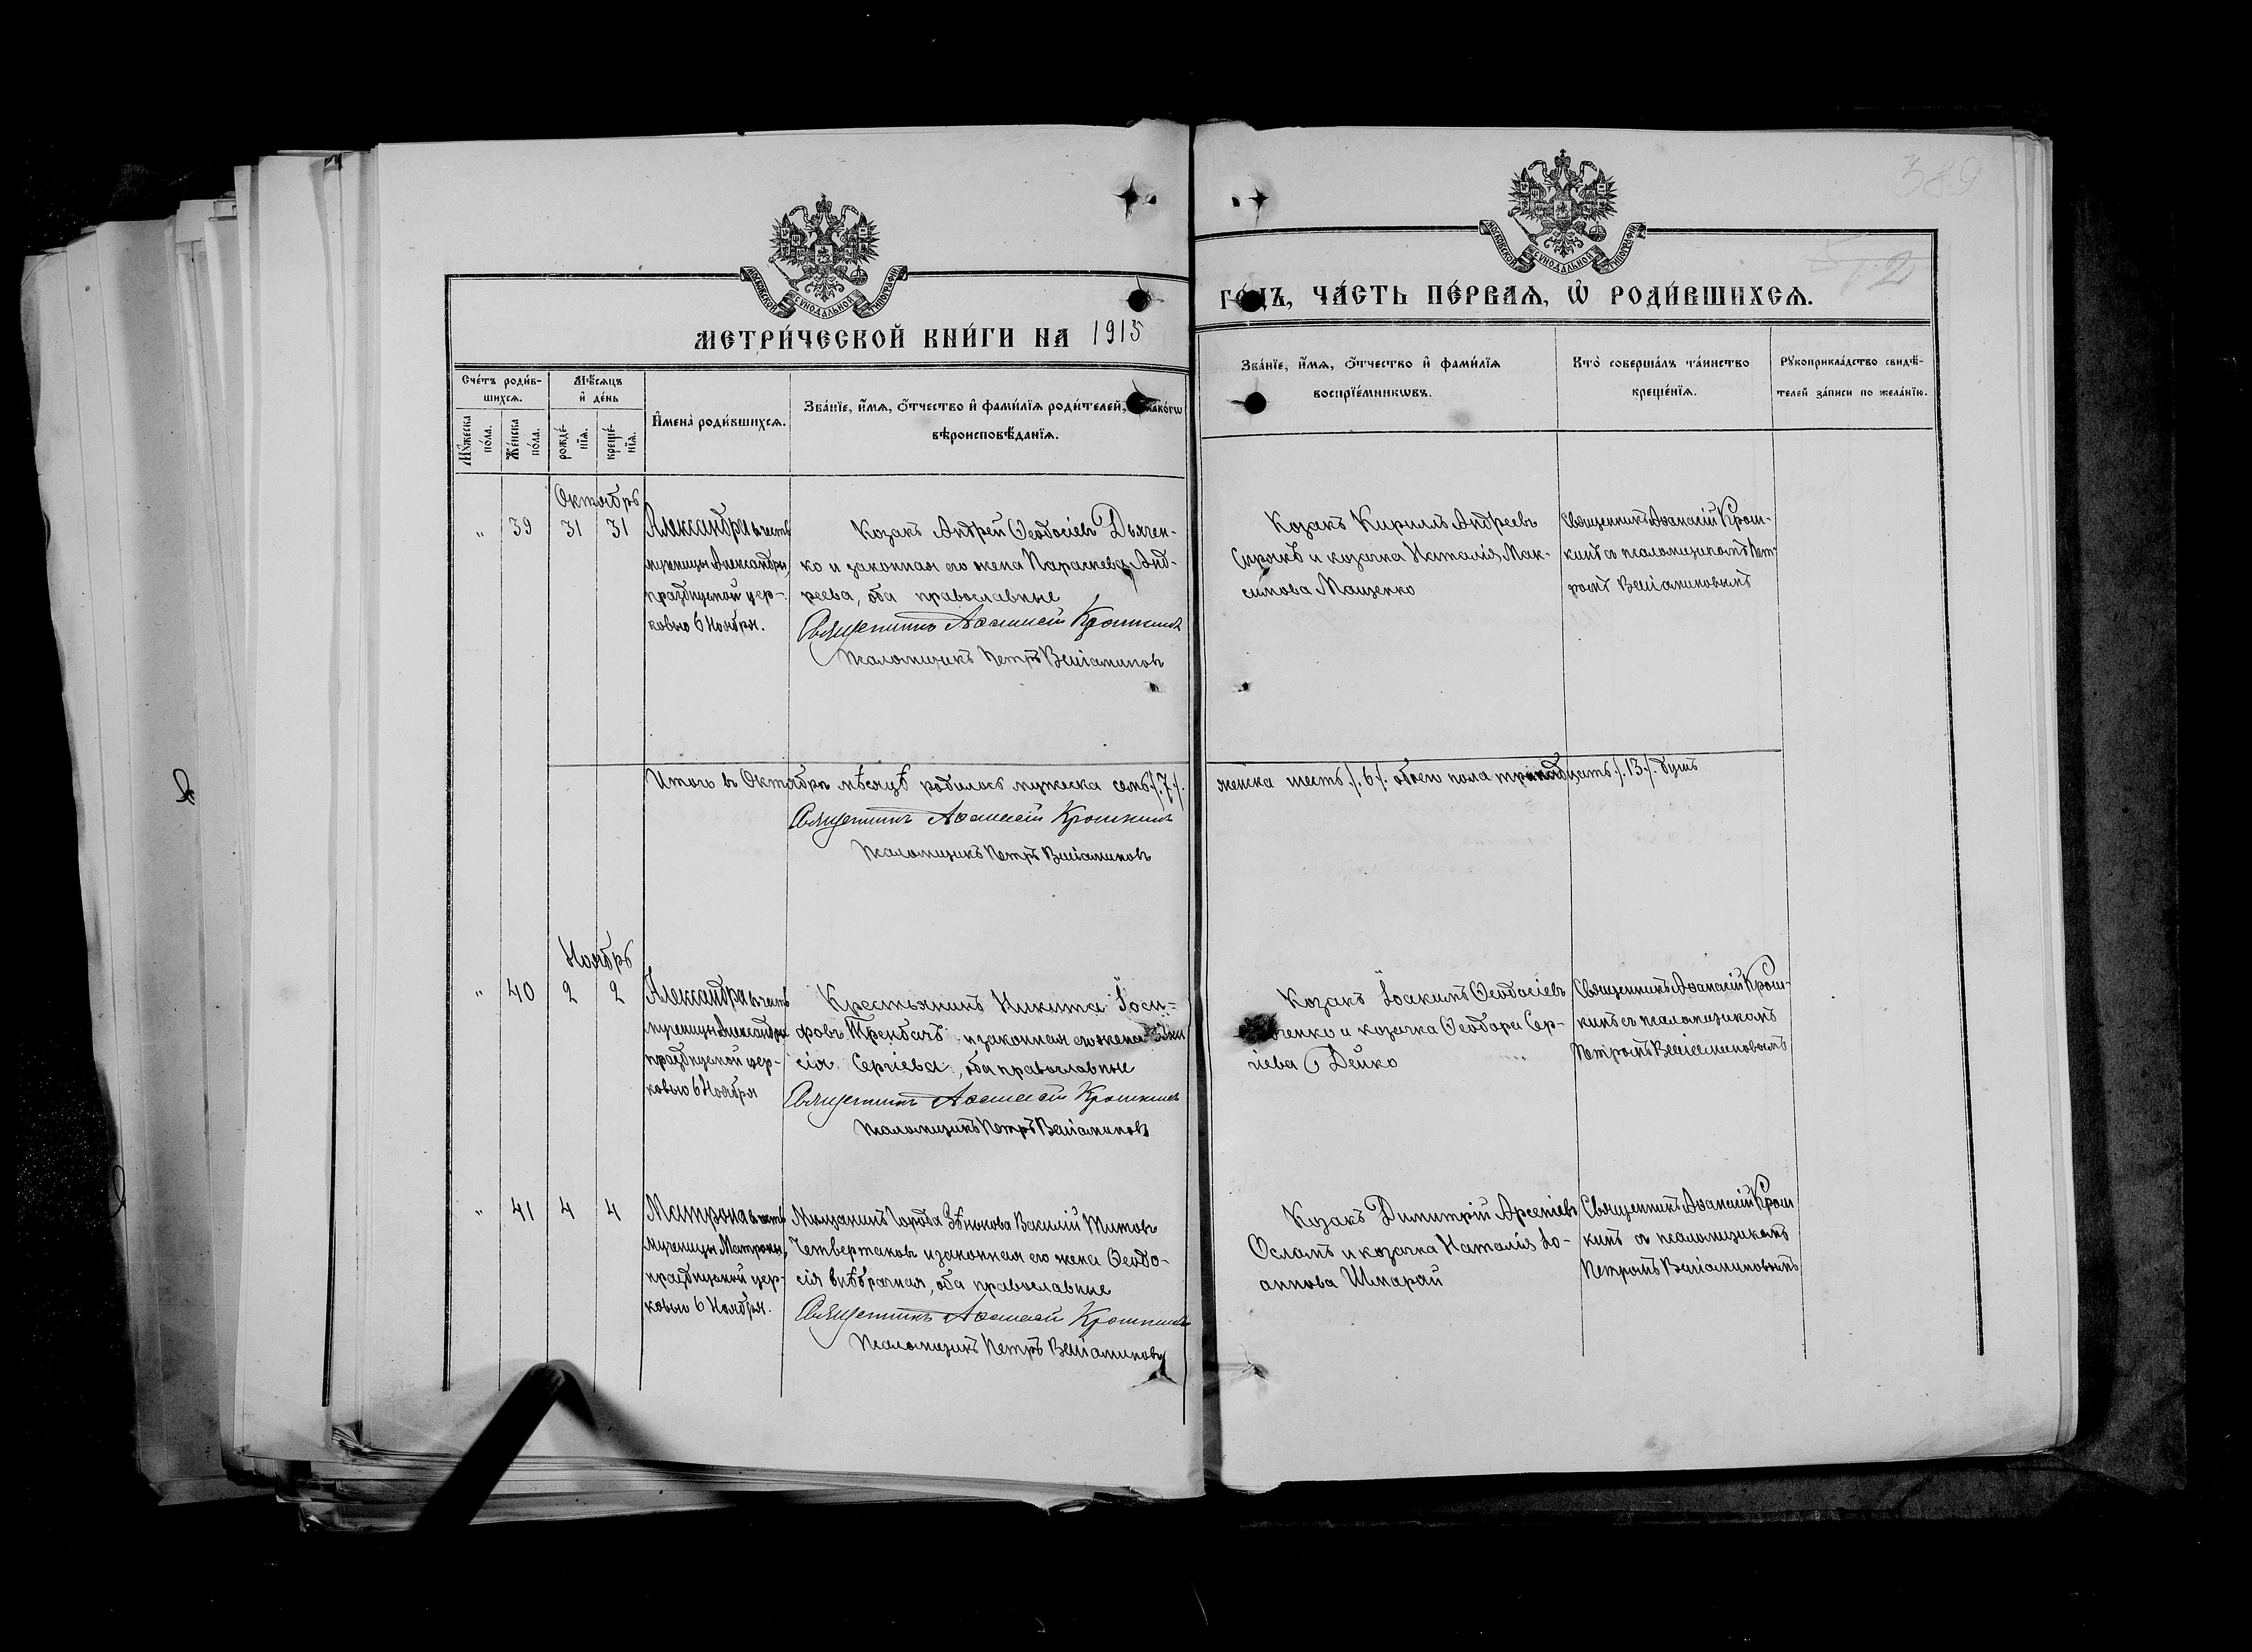 389
52
МОСКОВСКОЙ СѴНОДАЛЬНОЙ ТИПОГРАФІИ
МОСКОВСКОЙ СѴНОДАЛЬНОЙ ТИПОГРАФІИ
МЕТРИ́ЧЕСКОЙ КНИ́ГИ НА 1915
ГО́ДЪ, ЧА́СТЬ ПЕ́РВАЯ, Ѡ҆ РОДИ́ВШИХСЯ.
Сче́тъ роди́в-
шихся.
Мѣ́сяцъ
и҆ де́нь
Му́жеска
по́ла.
Же́нска
по́ла.
рожде́-
нїя.
креще́-
нїя.
И҆мена̀ роди́вшихся.
Зва́нїе, и҆́мя, ѻ҆́тчество и҆ фами́лїя роди́телей,
вѣроисповѣ́данїя.
Зва́нїе, и҆́мя, ѻ҆́тчество и҆ фами́лїя
воспрїе́мникѡвъ.
Кто̀ соверша́лъ та́инство
креще́нїя.
Рꙋкоприкла́дство свидѣ́-
телей за́писи по жела́нїю.
Октябрь
" 39 31 31
Александра въ честь
мученицы Александры,
празднуемой цер-
ковью 6 Ноября.
Козакъ Андрей Ѳеодосіевъ Дьячен-
ко и законная его жена Параскева Анд-
реева, оба православные
Священникъ Аѳанасій Крошкинъ
Псаломщикъ Петръ Веніаминовъ
Козакъ Кириллъ Андреевъ
Сирикъ и козачка Наталія Мак-
симова Мащенко
Священникъ Аѳанасій Крош-
кинъ съ псаломщикомъ Пет-
ромъ Веніаминовымъ
Итого въ Октябрѣ мѣсяцѣ родилось мужеска семь /.7./.
женска шесть /.6./. обоего пола тринадцать /.13./. душъ
Священникъ Аѳанасій Крошкинъ
Псаломщикъ Петръ Веніаминовъ
Ноябрь
" 40 2 2
Александра въ честь
мученицы Александры
празднуемой цер-
ковью 6 Ноября
Крестьянинъ Никита Іоси-
фовъ Трембачъ и законная его жена
сія Сергіева, оба православные
Священникъ Аѳанасій Крошкинъ
Псаломщикъ Петръ Веніаминовъ
Козакъ Іоакимъ Ѳеодосіевъ
ченко и козачка Ѳеодора Сер-
гіева Дейко
Священникъ Аѳанасій Крош-
кинъ съ псаломщикомъ
Петромъ Веніаминовымъ
" 41 4 4
Матрона въ честь
мученицы Матроны,
празднуемой цер-
ковью 6 Ноября.
Мѣщанинъ города Зѣнькова Василій Титовъ
Четвертаковъ и законная его жена Ѳеодо-
сія внѣбрачная, оба православные
Священникъ Аѳанасій Крошкинъ
Псаломщикъ Петръ Веніаминовъ
Козакъ Димитрій Арсеніевъ
Осламъ и козачка Наталія Іо-
аннова Шмарай
Священникъ Аѳанасій Крош
кинъ съ псаломщикомъ
Петромъ Веніаминовымъ